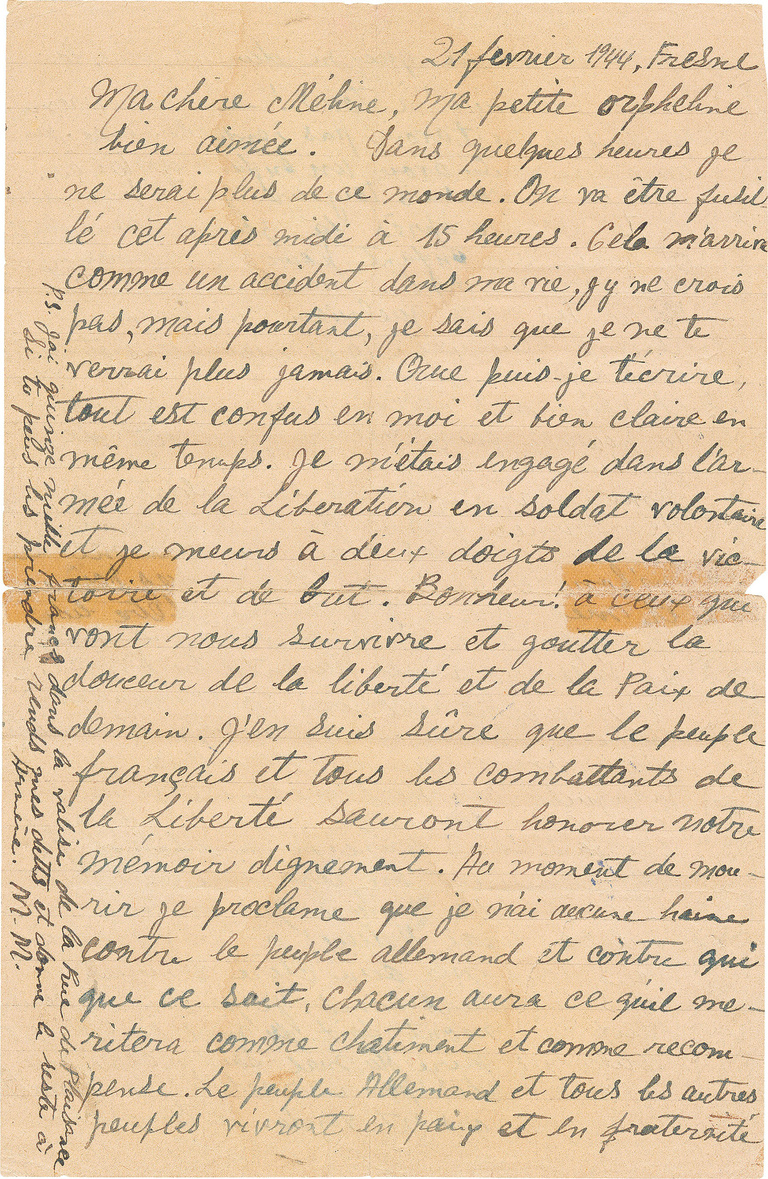 21 fevrier 1944, Fresne
Ma chère Méline, ma petite orpheline
bien aimée. Dans quelques heures je
ne serai plus de ce monde. On va être fusil-
lé cet après midi à 15 heures. Cela m'arrive
comme un accident dans ma vie, j'y ne crois
pas, mais pourtant, je sais que je ne te
verrai plus jamais. Que puis-je t'écrire,
tout est confus en moi et bien claire en
même temps. Je m'étais engagé dans l'ar-
mée de la Libération en soldat volontaire
et je meurs à deux doigts de la vic-
toire et de but. Bonheur! à ceux qui
vont nous survivre et goutter la
douceur de la liberté et de la Paix de
demain. J'en suis sûre que le peuple
français et tous les combattants de
la Liberté sauront honorer notre
mémoir dignement. Au moment de mou-
rir je proclame que je n'ai aucune haine
contre le peuple allemand et contre qui
que ce soit, chacun aura ce qu'il me-
ritera comme chatiment et comme recom-
pense. Le peuple Allemand et tous les autres
peuples vivront en paix et en fraternité
P.S. J'ai quinze mille francs dans la valise de la Rue de Plaisance
Si tu peus les prendre rends mes dettes et donne le reste à
Armène. M. M.